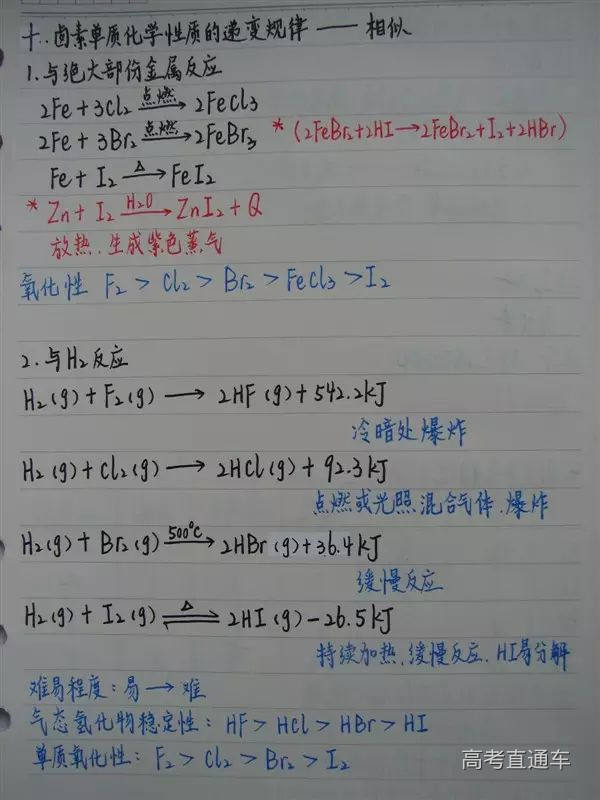 十.卤素单质化学性质的递变规律 —— 相似
1.与绝大部份金属反应
2Fe + 3Cl₂ 点燃→ 2FeCl₃
2Fe + 3Br₂ 点燃→ 2FeBr₃ *(2FeBr₂+2HI→2FeBr₂+I₂+2HBr)
Fe + I₂ △→ FeI₂
* Zn + I₂ H₂O→ ZnI₂ + Q
放热.生成紫色蒸气
氧化性 F₂ > Cl₂ > Br₂ > FeCl₃ > I₂
2.与H₂反应
H₂(g) + F₂(g) → 2HF(g) + 542.2kJ
冷暗处爆炸
H₂(g) + Cl₂(g) → 2HCl(g) + 92.3kJ
点燃或光照混合气体.爆炸
H₂(g) + Br₂(g) 500℃→ 2HBr(g) + 36.4kJ
缓慢反应
H₂(g) + I₂(g) △⇌ 2HI(g) - 26.5kJ
持续加热.缓慢反应.HI易分解
难易程度:易→难
气态氢化物稳定性:HF > HCl > HBr > HI
单质氧化性:F₂ > Cl₂ > Br₂ > I₂
高考直通车